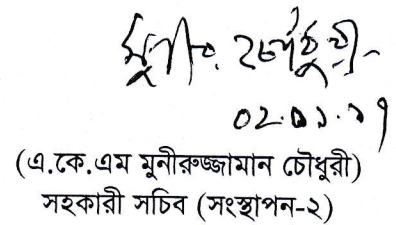 ০২.০১.১৭
(এ.কে.এম মুনীরুজ্জামান চৌধুরী)
সহকারী সচিব (সংস্থাপন-২)